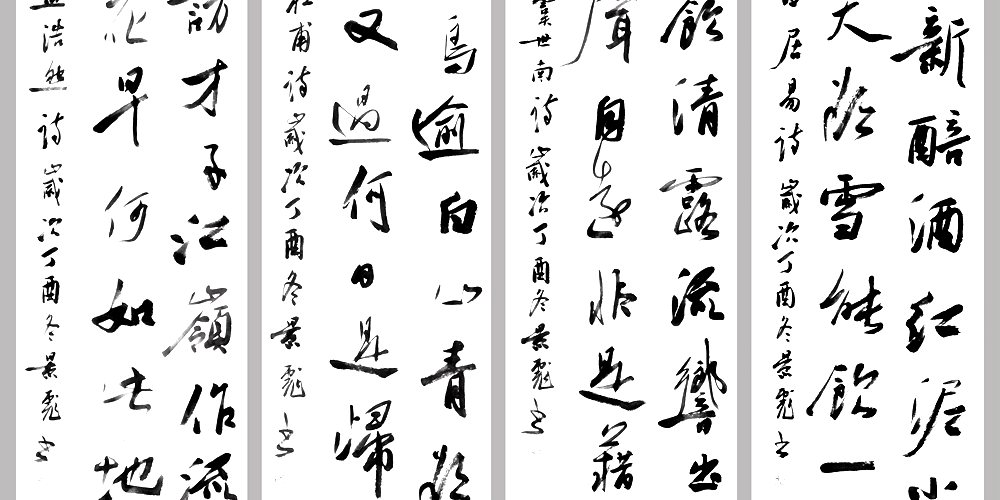 新醅酒紅泥小
天欲雪能飲一
居易詩歲次丁酉冬景彪書
飲清露流響出
聲自遠非是藉
虞世南詩歲次丁酉冬景彪書
鳥逾白山青欲
又過何日是歸
杜甫詩歲次丁酉冬景彪書
訪才子江嶺作流
花早何如此地
孟浩然詩歲次丁酉冬景彪書